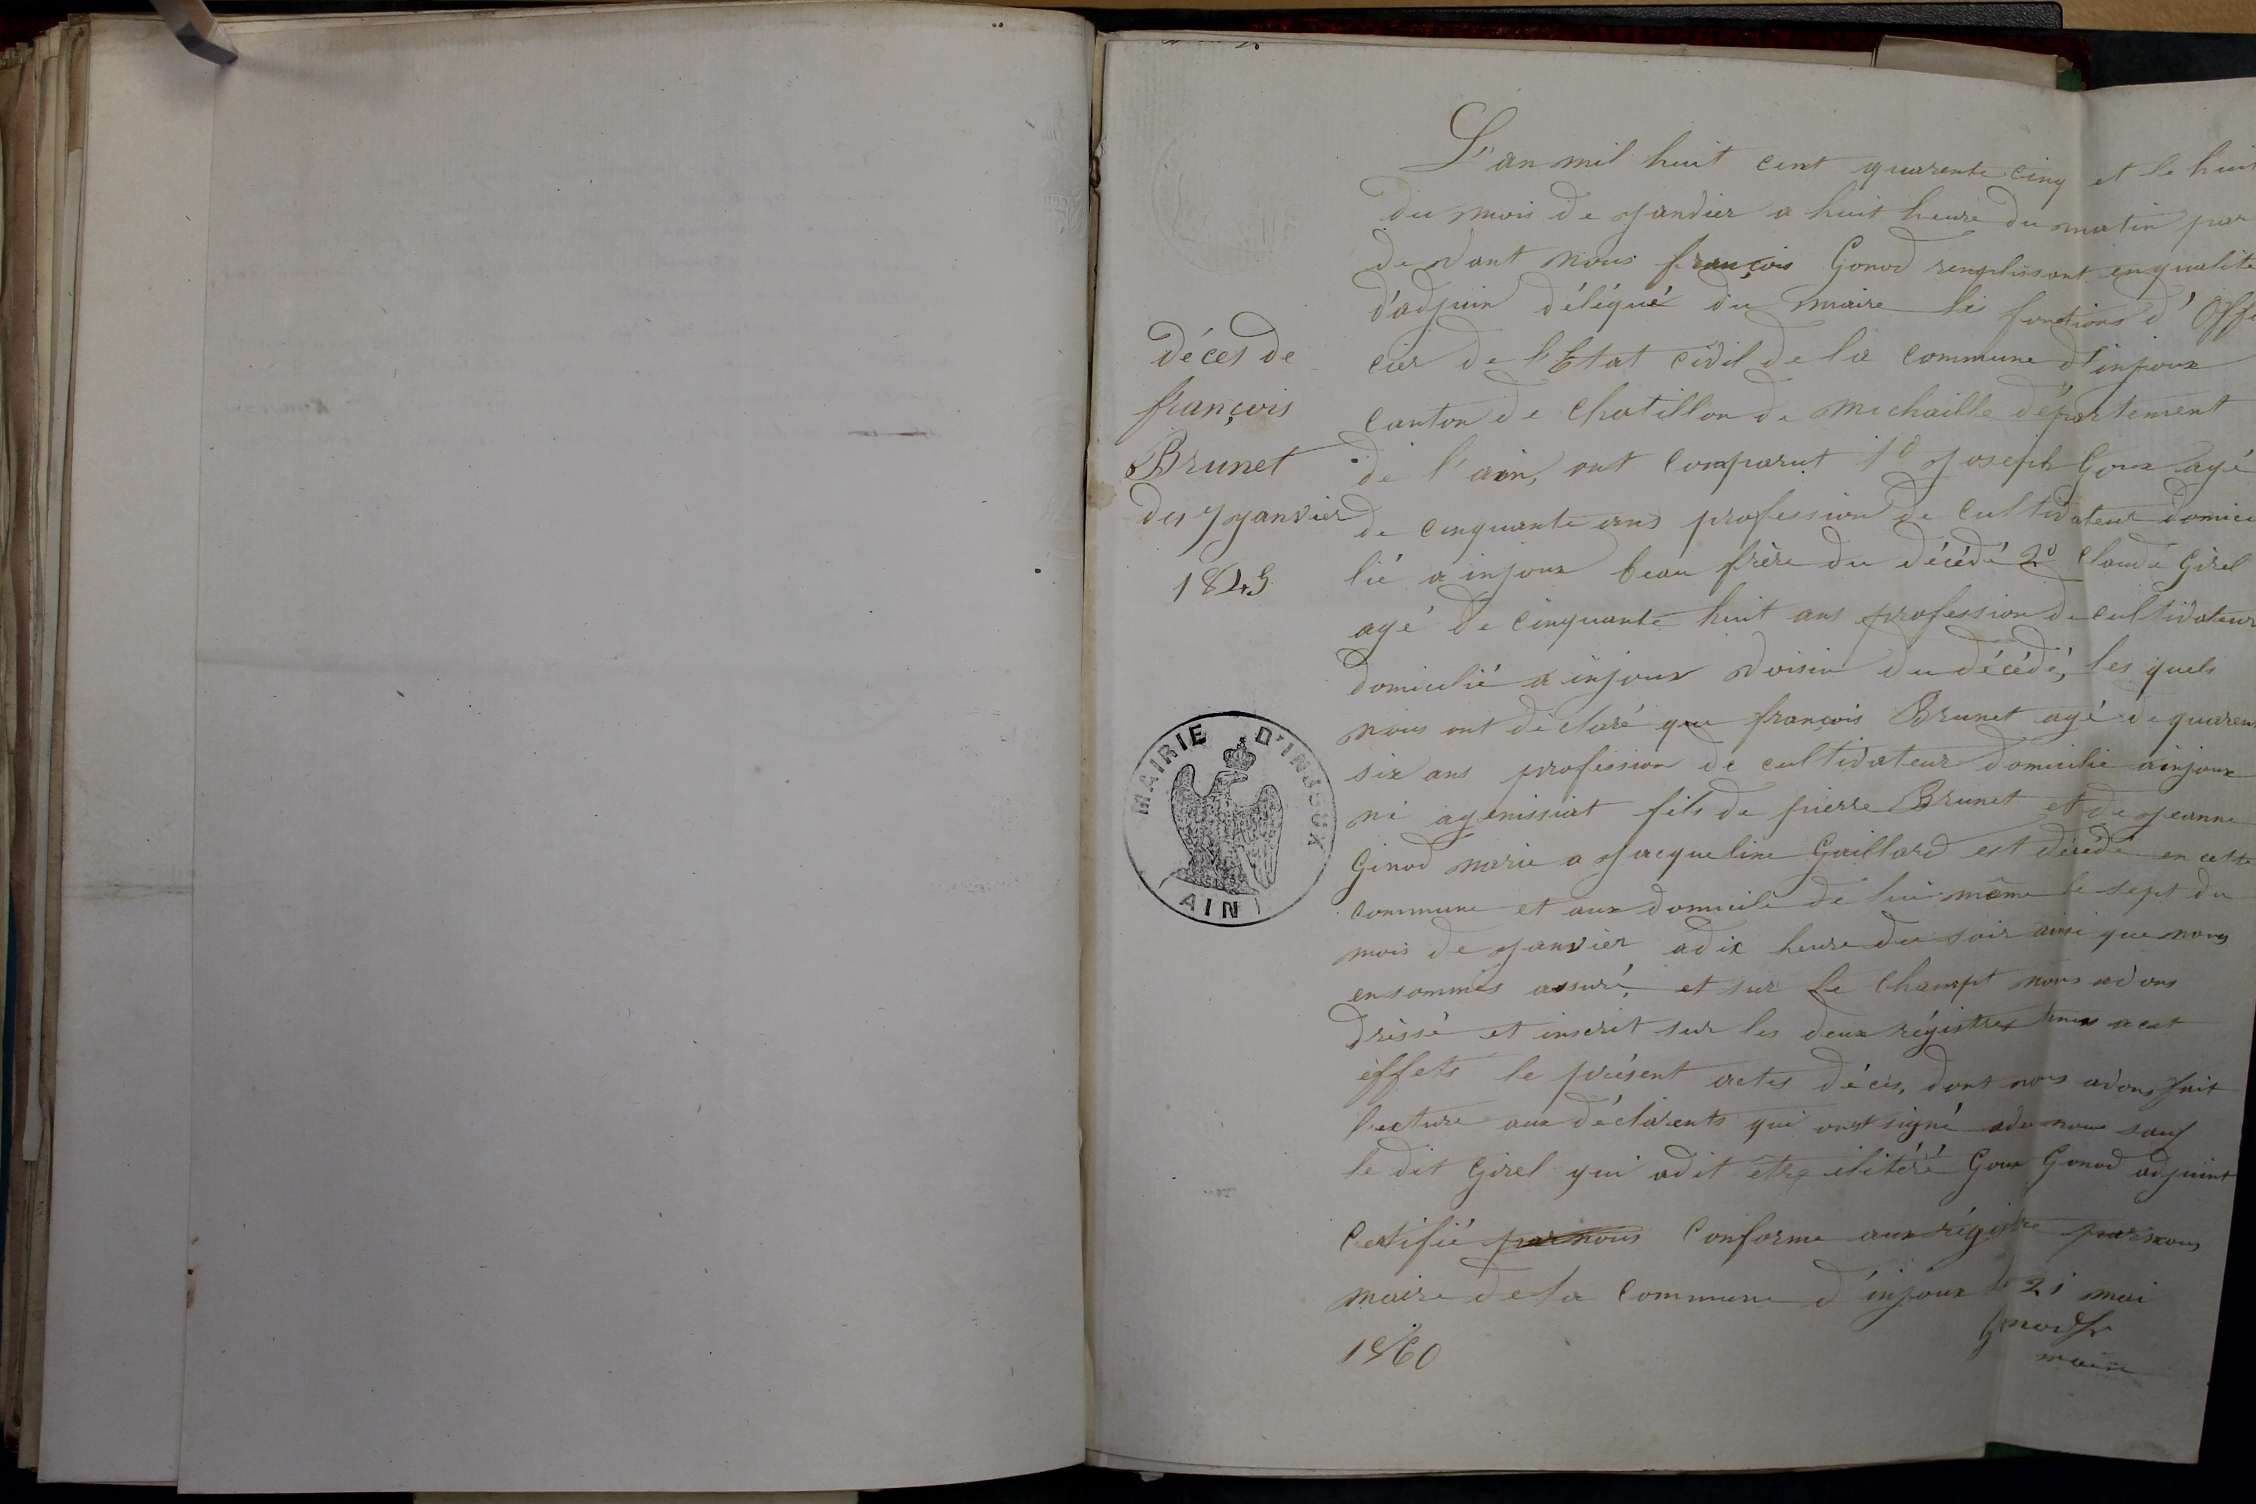 L'an mil huit cent quarente cinq et le huit
du mois de janvier a huit heure du matin par
devant nous françois Gonod remplissant en qualité
d'adjuin délégué du maire les fonctions d'Offi
cier de l'Etat civil de la commune d'injoux
canton de Chatillon de michaille département
de l'ain, ont comparut 1º joseph Goux agé
de cinquante ans profession de cultivateur domici
lié a injoux beau frère du décédé 2º claude Girel
agé de cinquante huit ans profession de cultivateur
domicilié a injoux voisin du décédé, les quels
nous ont déclaré que françois Brunet agé de quaren
six ans profession de cultivateur domicilié a injoux
né a génissiat fils de pierre Brunet et de jeanne
Ginod marié a jacqueline Gaillard est décédé en cette
commune et aux domicile de lui même le sept du
mois de janvier a dix heure du soir ainsi que nous
en sommes assuré, et sur le champt nous avons
dressé et inscrit sur les deux régistres tenus a cet
éffets le présent actes décès, dont nous avons fait
lecture aux déclarents qui onst signé avec nous sauf
le dit Girel qui a dit être ilitéré Goux Gonod adjuint
Certifié par nous Conforme aux régistre par nous
maire de la Commune d'injoux le 21 mai
1860
maire
décès de
françois
Brunet
du 7 janvier
1845
MAIRIE D'INJOUX
(AIN)